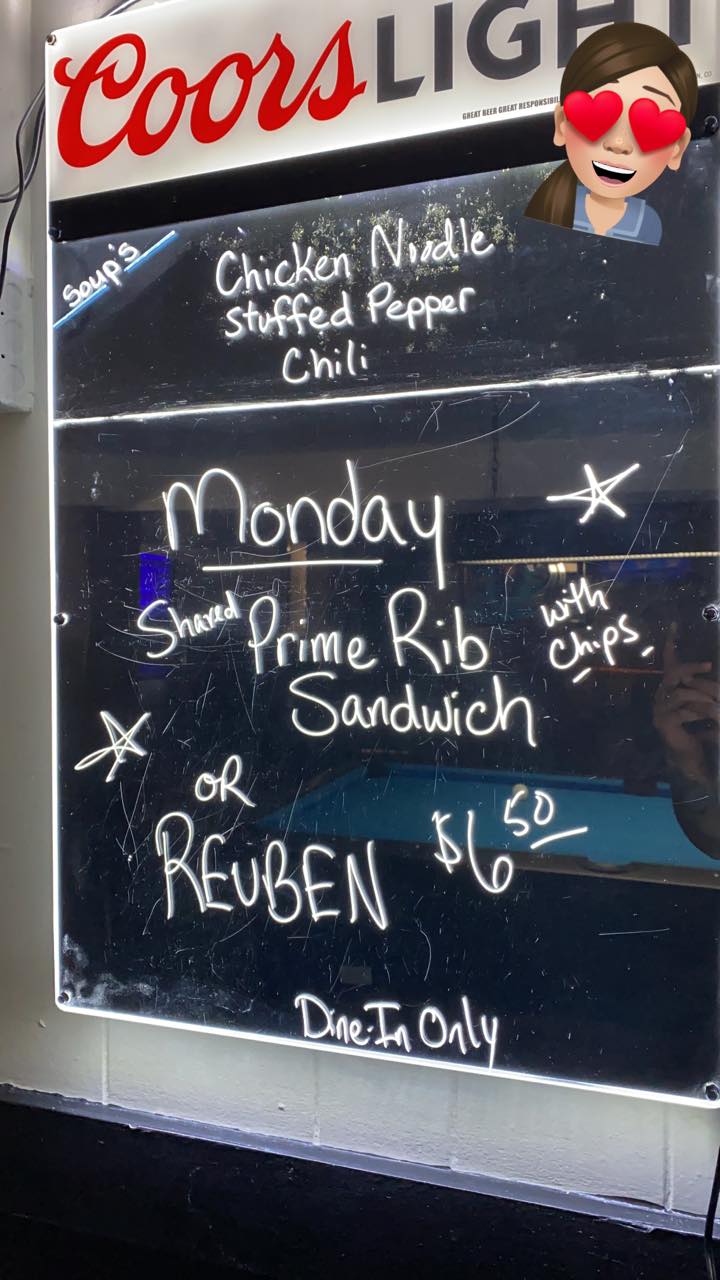 Coors LIGHT
GREAT BEER GREAT RESPONSIBIL
N, CO
Soup's
Chicken Noodle
Stuffed Pepper
Chili
Monday
Shaved Prime Rib with
Sandwich Chips
OR
REUBEN $6.50
Dine-In Only